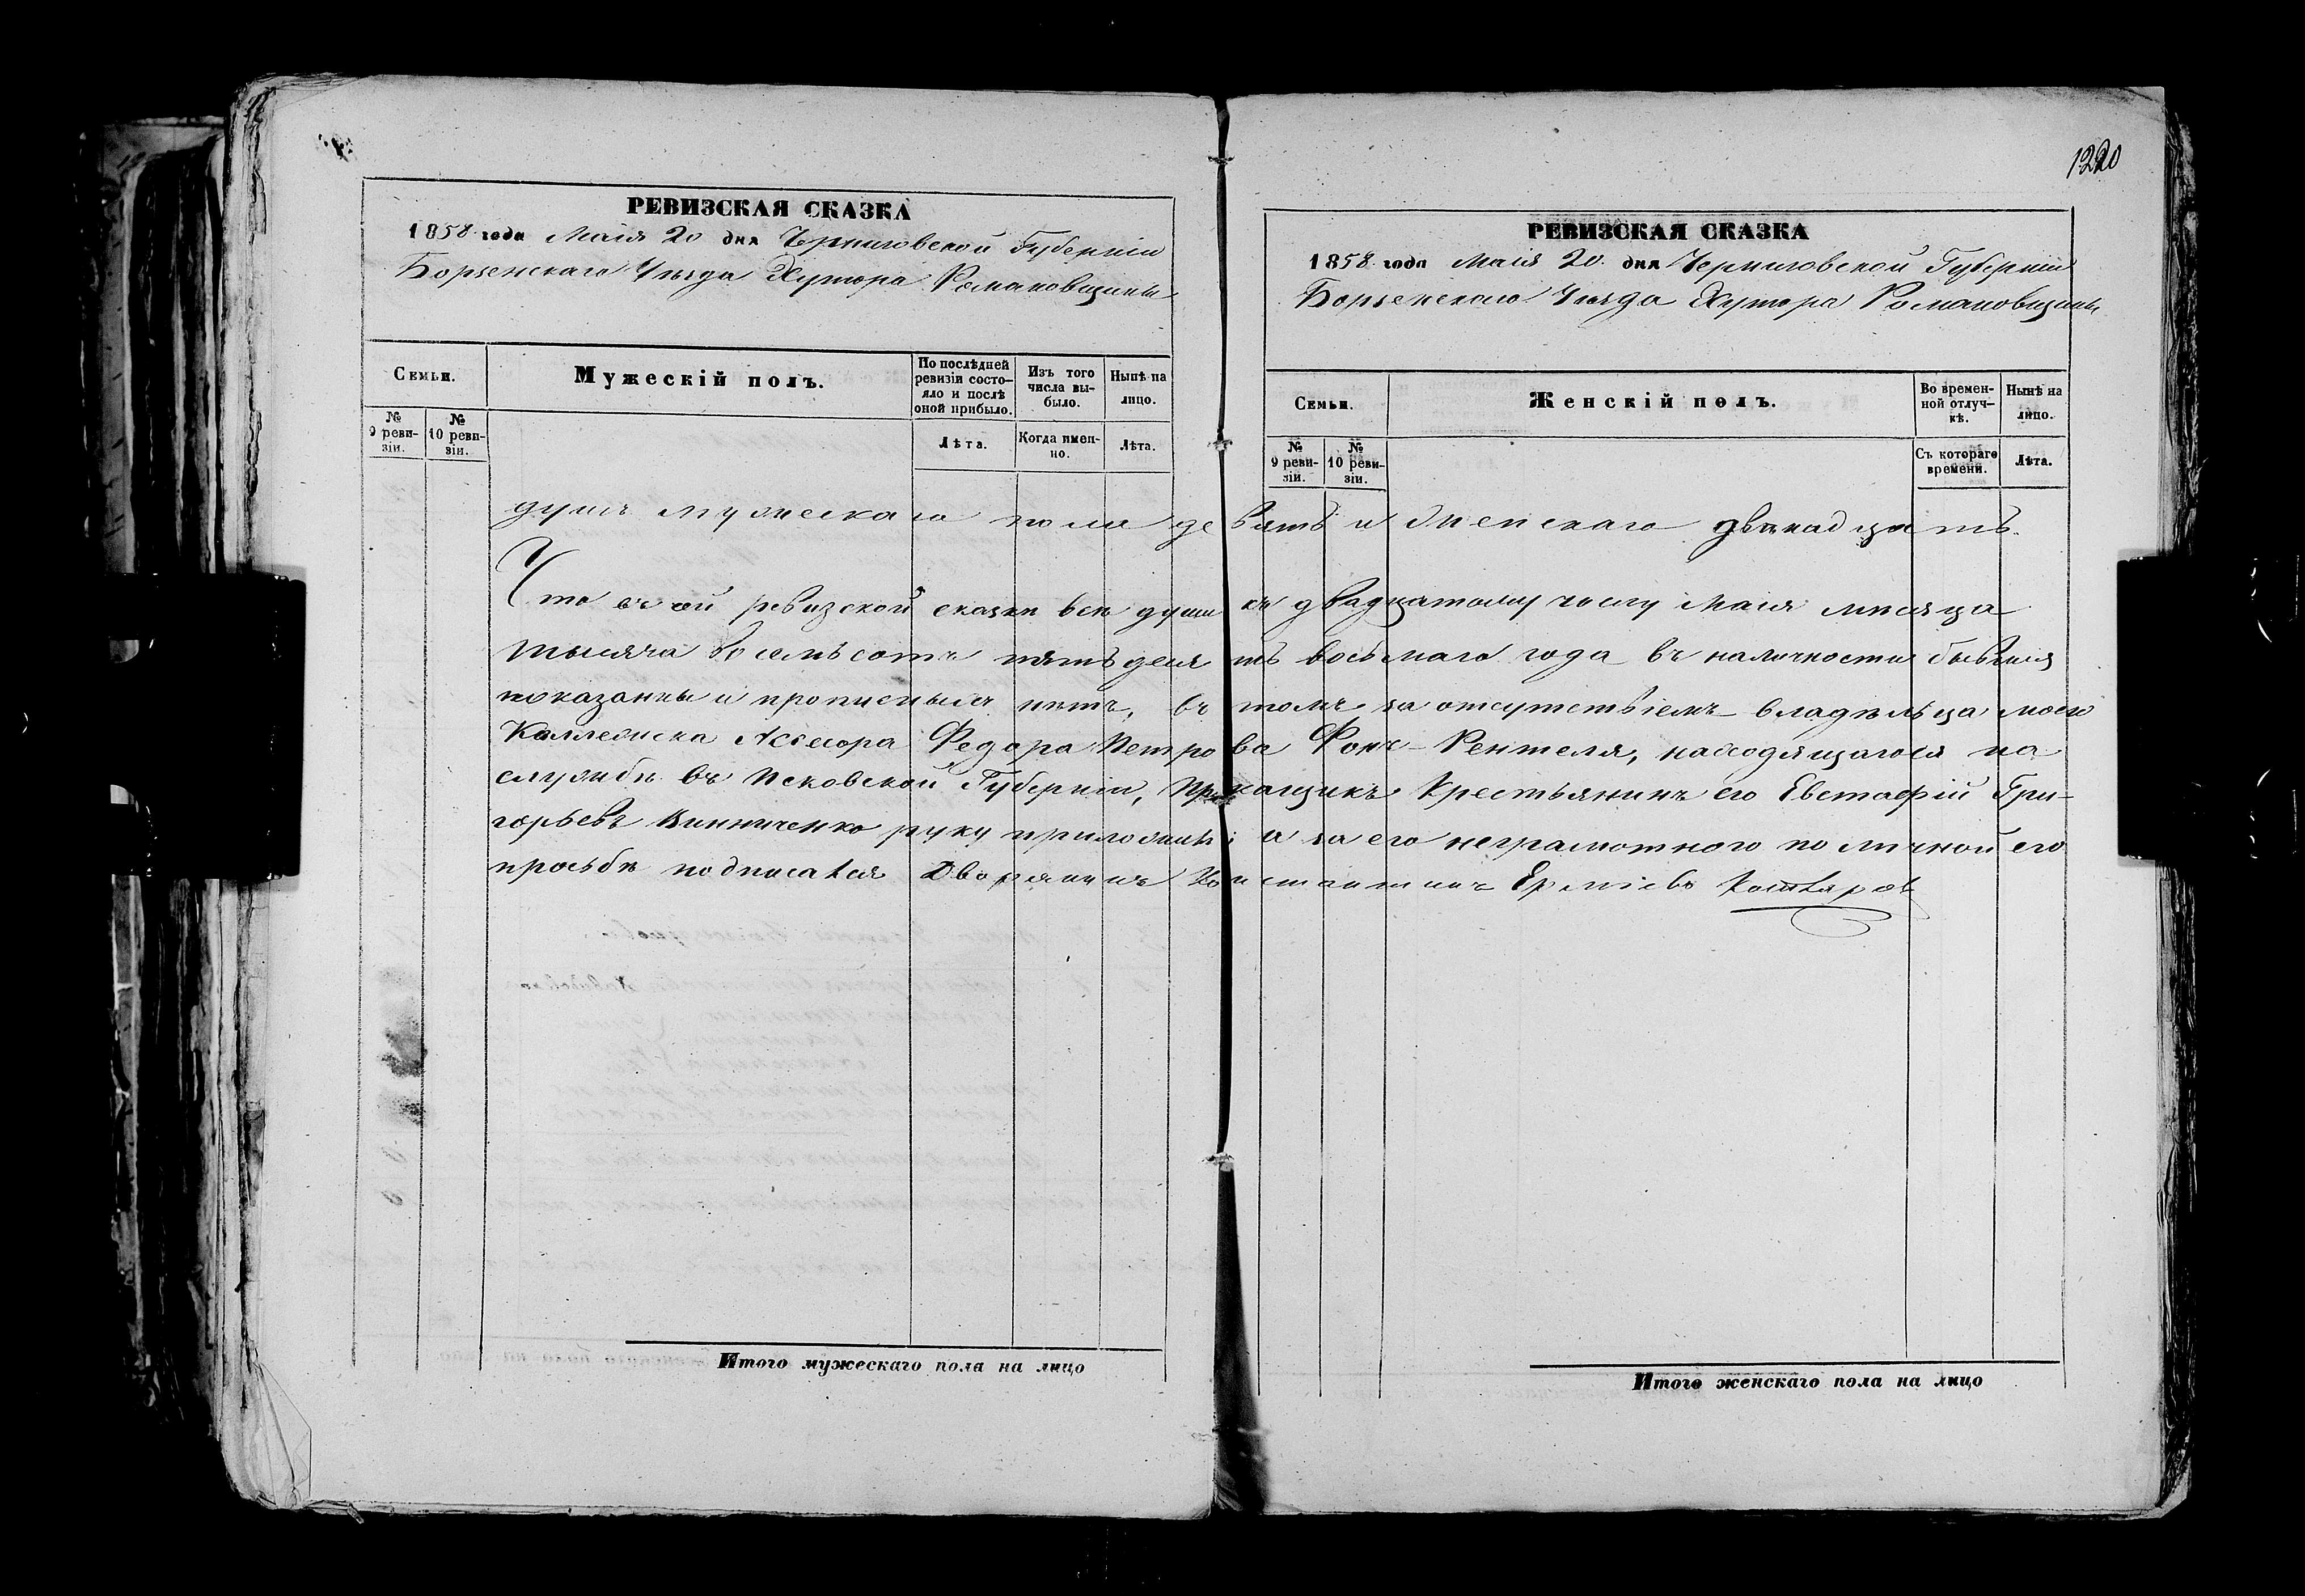 1220
РЕВИЗСКАЯ СКАЗКА
1858 года Маія 20 дня Черниговской Губерніи
Борзенскаго Уѣзда Хутора Романовщины
Семьи.
Мужескій полъ.
По послѣдней ревизіи состояло и послѣ оной прибыло.
Изъ того числа выбыло.
Нынѣ на лицо.
№ 9 ревизіи.
№ 10 ревизіи.
Лѣта.
Когда именно.
Лѣта.
РЕВИЗСКАЯ СКАЗКА
1858 года Маія 20 дня Черниговской Губерніи
Борзенскаго Уѣзда Хутора Романовщины
Семьи.
Женскій полъ.
Во временной отлучкѣ.
Нынѣ на лицо.
№ 9 ревизіи.
№ 10 ревизіи.
Съ котораго времени.
Лѣта.
душъ мужескаго пола девять и женскаго двѣнадцать.
Что въ сей ревизской сказки всѣ души къ двадцатому числу Маія мѣсяца
тысяча восемьсотъ пятьдесятъ восьмаго года въ наличности бывшія
показаны и прописныхъ нѣтъ, въ томъ за отсутствіемъ владѣльца моего
Коллежска Ассесора Федора Петрова Фонъ-Рентеля, находящагося на
службѣ въ Псковской Губерніи, Прикащикъ Крестьянинъ его Евстафій Гри-
горьевъ Винниченко руку приложилъ; а за его неграмотного по личной его
просьбѣ подписался Дворянинъ Константинъ Ермiевъ
Итого мужескаго пола на лицо
Итого женскаго пола на лицо